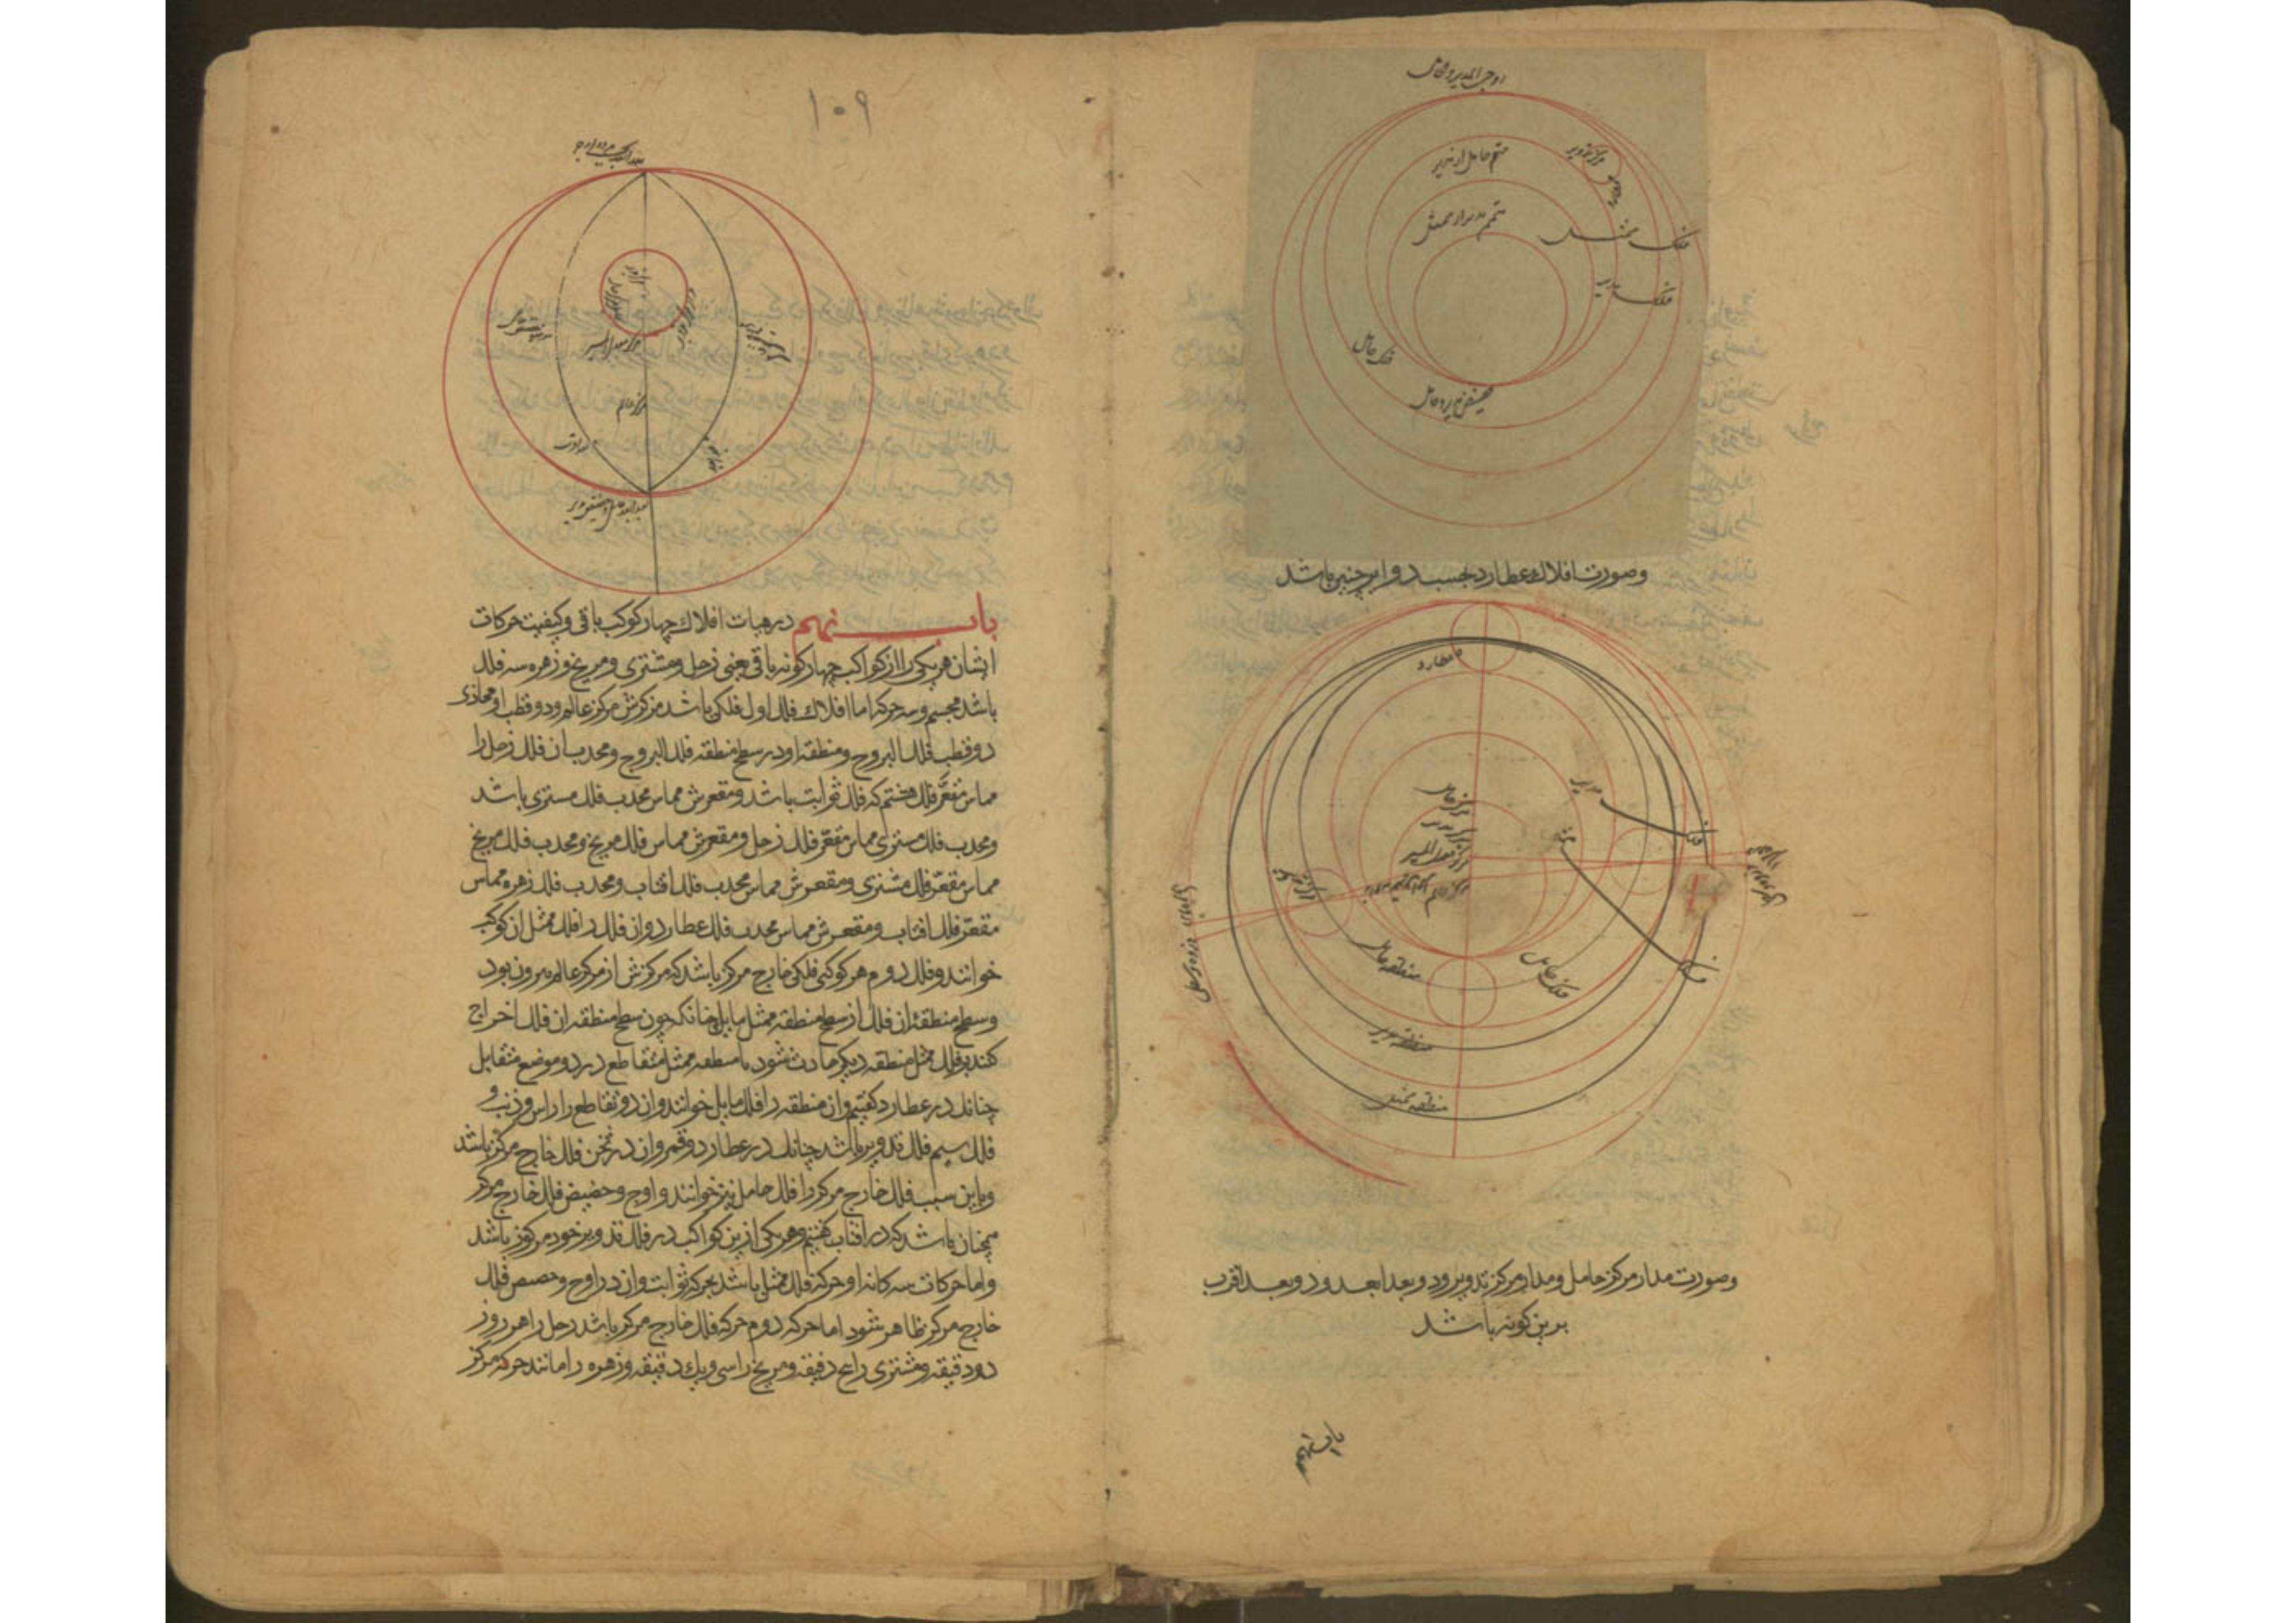 اوج المدیر و الحامل
مرکز تدویر
متمم حامل از مدیر
متمم مدیر از ممثل
فلک ممثل
فلک مدیر
فلک حامل
حضیض مدیر و حامل
وصورت افلاك عطارد بحسب دوایر چنین باشد
عطارد
مرکز حامل
مرکز مدیر
مرکز معدل المسیر
مرکز عالم
فلک مدیر
فلک ممثل
منطقه حامل
فلک حامل
منطقه مدیر
منطقه ممثل
وصورت مدار مرکز حامل ومدار مرکز تدویر ود وبعد ابعد ود وبعد اقرب
برین کونه باشد
باب نهم
۱۰۹
مرکز مدیر
مرکز معدل المسیر
مرکز عالم
باب نهم در هیات افلاك چهار کوکب باقی وکیفیت حرکات
ایشان هر یکی را از کواکب چهارکونه باقی یعنی زحل ومشتری ومریخ وزهره سه فلك
باشد مجسم وسه حرکة اما افلاك فلك اول فلکی باشد مرکزش مرکز عالم ودو قطب او محاذی
دو قطب فلك البروج ومنطقه او در سطح منطقه فلك البروج ومحدب ان فلك زحل را
مماس مقعر فلك هشتم که فلك ثوابت باشد ومقعرش مماس محدب فلك مستری باشد
ومحدب فلك مستری مماس مقعر فلك زحل ومقعرش مماس فلك مریخ ومحدب فلك مریخ
مماس مقعر فلك مشتری ومقعرش مماس محدب فلك افتاب ومحدب فلك زهره مماس
مقعر فلك افتاب ومقعرش مماس محدب فلك عطارد وان فلك را فلك ممثل ان کوکب
خوانند وفلك دوم هر کوکبی فلکی خارج مرکز باشد که مرکزش از مرکز عالم بیرون بود
وسطح منطقه ان فلك از سطح منطقه ممثل مایل چنانکه چون سطح منطقه ان فلك اخراج
کنند بر فلك ممثل منطقه دیکر حادث شود با منطقه ممثل متقاطع در دو موضع متقابل
چنانك در عطارد کفتیم وان منطقه را فلك مایل خوانند وان دو تقاطع را راس وذنب و
فلك سیم فلك تدویر باشد چنانك در عطارد وقمر وان در ثخن فلك خارج مرکز باشد
وباین سبب فلك خارج مرکز را فلك حامل نیز خوانند واوج وحضیض فلك خارج مرکز
همچنان باشد که در افتاب کفتیم وهر یکی ازین کواکب در فلك تدویر خود مرکوز باشد
واما حرکات سه کانه او حرکة فلك ممثل باشد بحرکة ثوابت وان در اوج وحضیض فلك
خارج مرکز ظاهر شود اما حرکه دوم حرکة فلك خارج مرکز باشد زحل را هر روز
دو دقیقه ومشتری را ﻫ دقیقه ومریخ را سی ویك دقیقه وزهره را مانند حرکه مرکز